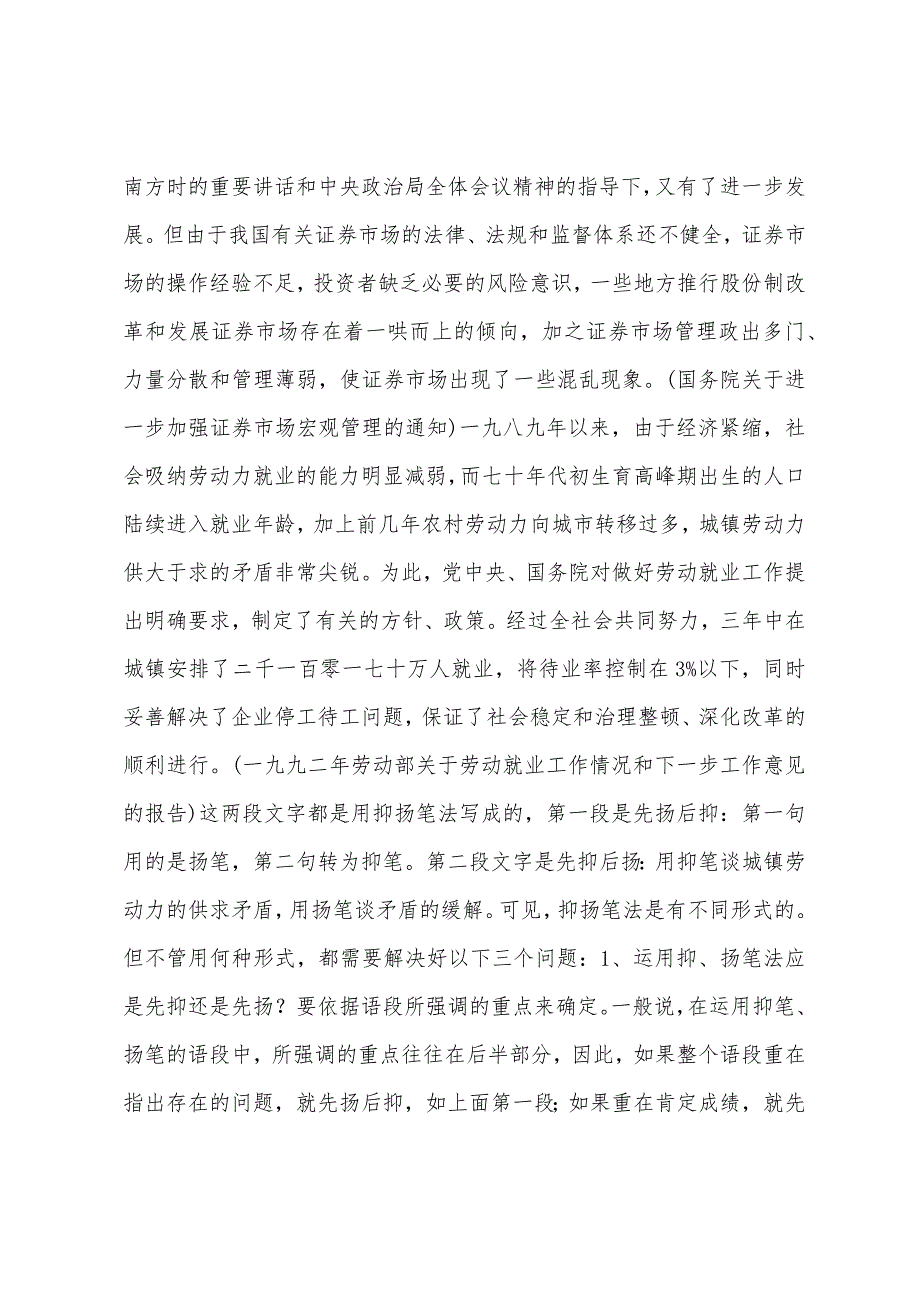 南方时的重要讲话和中央政治局全体会议精神的指导下,又有了进一步发
展。但由于我国有关证券市场的法律、法规和监督体系还不健全,证券市
场的操作经验不足,投资者缺乏必要的风险意识,一些地方推行股份制改
革和发展证券市场存在着一哄而上的倾向,加之证券市场管理政出多门、
力量分散和管理薄弱,使证券市场出现了一些混乱现象。(国务院关于进
一步加强证券市场宏观管理的通知)一九八九年以来,由于经济紧缩,社
会吸纳劳动力就业的能力明显减弱,而七十年代初生育高峰期出生的人口
陆续进入就业年龄,加上前几年农村劳动力向城市转移过多,城镇劳动力
供大于求的矛盾非常尖锐。为此,党中央、国务院对做好劳动就业工作提
出明确要求,制定了有关的方针、政策。经过全社会共同努力,三年中在
城镇安排了二千一百零一七十万人就业,将待业率控制在3%以下,同时
妥善解决了企业停工待工问题,保证了社会稳定和治理整顿、深化改革的
顺利进行。(一九九二年劳动部关于劳动就业工作情况和下一步工作意见
的报告)这两段文字都是用抑扬笔法写成的,第一段是先扬后抑:第一句
用的是扬笔,第二句转为抑笔。第二段文字是先抑后扬:用抑笔谈城镇劳
动力的供求矛盾,用扬笔谈矛盾的缓解。可见,抑扬笔法是有不同形式的。
但不管用何种形式,都需要解决好以下三个问题:1、运用抑、扬笔法应
是先抑还是先扬?要依据语段所强调的重点来确定。一般说,在运用抑笔、
扬笔的语段中,所强调的重点往往在后半部分,因此,如果整个语段重在
指出存在的问题,就先扬后抑,如上面第一段;如果重在肯定成绩,就先